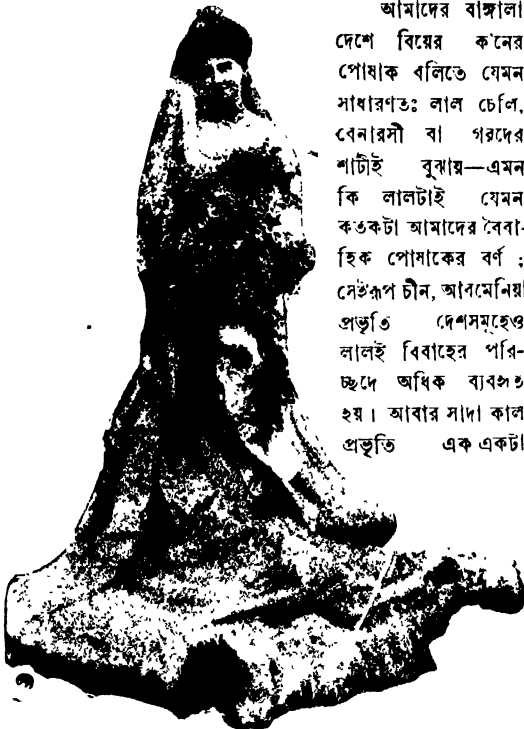 আমাদের বাঙ্গালা
দেশে বিয়ের ক'নের
পোষাক বলিতে যেমন
সাধারণতঃ লাল চেলি,
বেনারসী বা গরদের
শাটীই বুঝায়—এমন
কি লালটাই যেমন
কতকটা আমাদের বৈবা-
হিক পোষাকের বর্ণ ;
সেইরূপ চীন, আরমেনিয়া
প্রভৃতি দেশসমূহেও
লালই বিবাহের পরি-
চ্ছদে অধিক ব্যবহৃত
হয়। আবার সাদা কাল
প্রভৃতি এক একটা